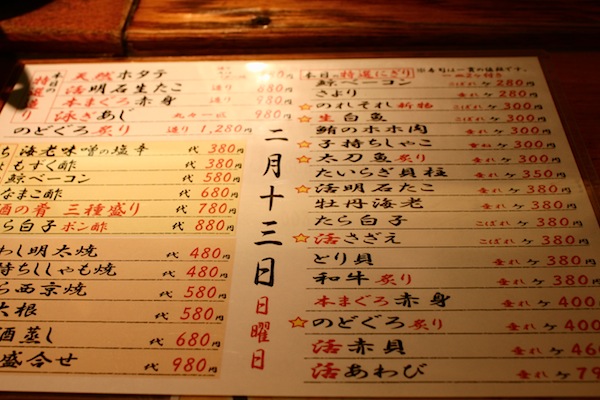 本日の特選造り
天然ホタテ
活明石生たこ 造り 880円
本まぐろ赤身 造り 980円
泳ぎあじ 丸々一匹 980円
のどぐろ炙り 造り 1,280円
海老味噌の塩辛 代 380円
もずく酢 代 380円
鯨ベーコン 代 580円
なまこ酢 代 680円
酒の肴 三種盛り 代 780円
ら白子ポン酢 代 880円
わし明太焼 代 480円
持ちししゃも焼 代 480円
ら西京焼 代 580円
大根 代 580円
酒蒸し 代 680円
盛合せ 代 980円
二月十三日 日曜日
本日の特選にぎり
鯨ベーコン こぼれ ケ 280円
さより 垂れ ケ 280円
のれそれ 新物 こぼれ ケ 300円
生白魚 こぼれ ケ 300円
鮪のホホ肉 垂れ ケ 300円
子持ちしゃこ 垂ね ケ 300円
太刀魚炙り 垂れ ケ 300円
たいらぎ貝柱 垂れ ケ 350円
活明石たこ 垂れ ケ 380円
牡丹海老 垂れ ケ 380円
たら白子 こぼれ ケ 380円
活さざえ こぼれ ケ 380円
とり貝 垂れ ケ 380円
和牛炙り 垂れ ケ 380円
本まぐろ赤身 垂れ ケ 400
のどぐろ炙り 垂れ ケ 400
活赤貝 垂れ ケ 460
活あわび 垂れ ケ 79